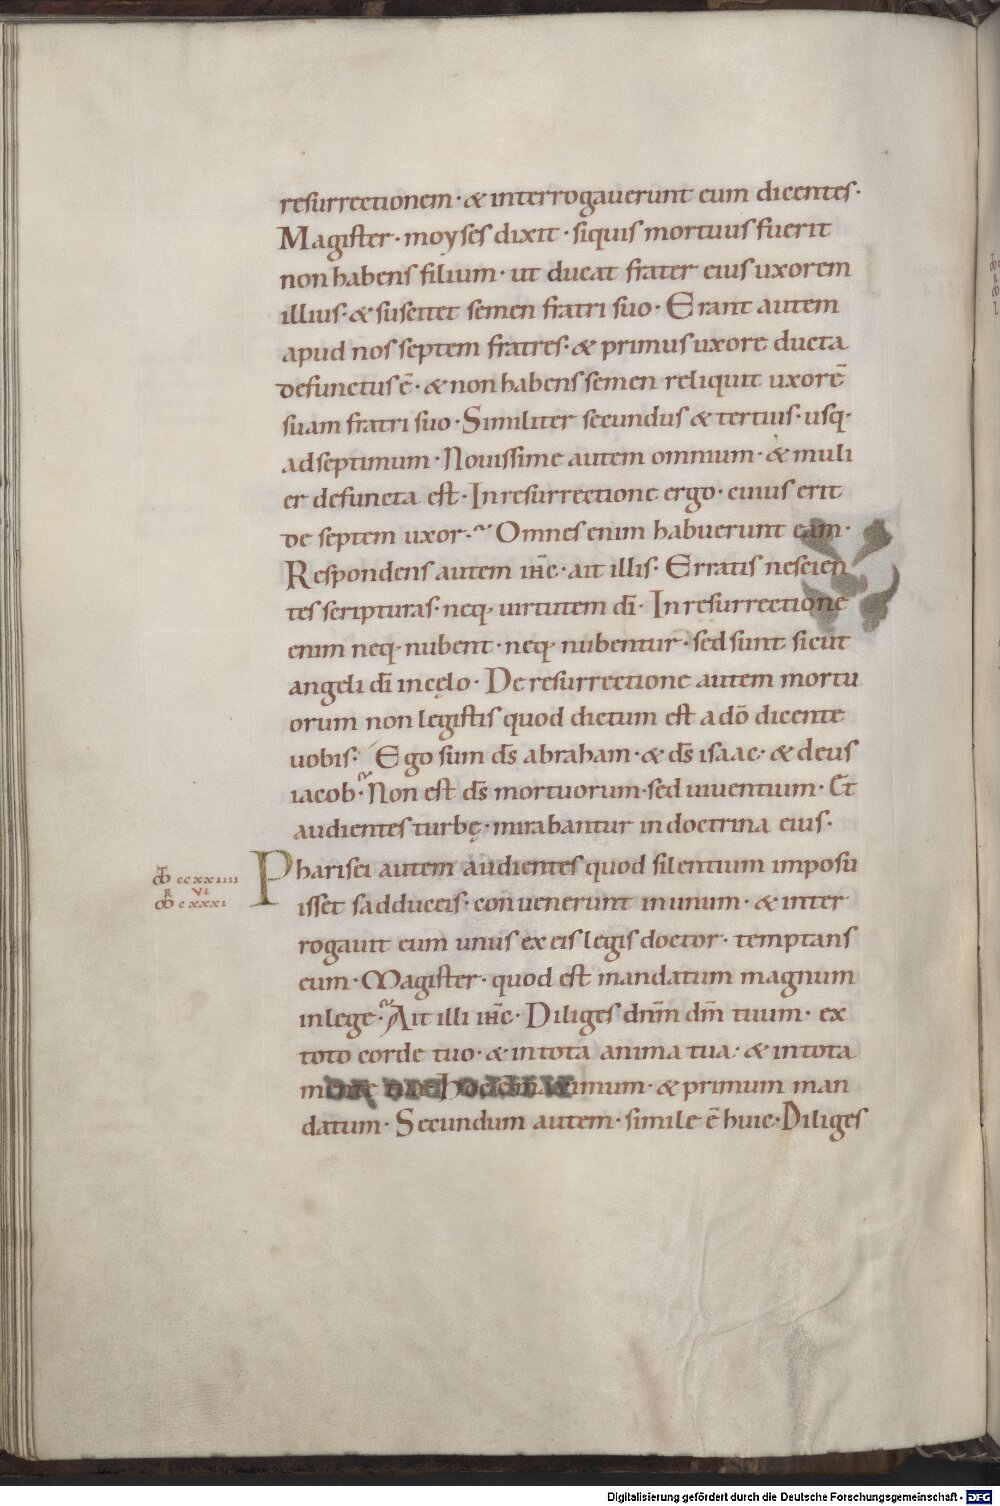 resurrectionem · & interrogauerunt eum dicentes ·
Magister · moyses dixit · siquis mortuus fuerit
non habens filium · ut ducat frater eius uxorem
illius · & suscitet semen fratri suo · Erant autem
apud nos septem fratres · & primus uxore ducta
defunctus ē · & non habens semen reliquit uxorē
suam fratri suo · Similiter secundus & tertius · usq·
ad septimum · Nouissime autem omnium · & muli
er defuncta est · In resurrectione ergo · cuius erit
de septem uxor · Omnes enim habuerunt eam ·
Respondens autem ih̅c · ait illis · Erratis nescien
tes scripturas · neq· uirtutem dī · In resurrectione
enim neq· nubent · neq· nubentur · sed sunt sicut
angeli dī in cęlo · De resurrectione autem mortu
orum non legistis quod dictum est a dō dicente
uobis · Ego sum ds̅ abraham · & ds̅ isaac · & deus
iacob · Non est ds̅ mortuorum · sed uiuentium · Et
audientes turbę · mirabantur in doctrina eius ·
Pharisei autem audientes quod silentium imposu
ccxxiiii
isset sadduceis · conuenerunt in unum · & inter
R VI
cxxxi
rogauit eum unus ex eis legis doctor · temptans
eum · Magister · quod est mandatum magnum
in lege · Ait illi ih̅c · Diliges dn̅m dm̅ tuum · ex
toto corde tuo · & in tota anima tua · & in tota
mente tua · Hoc est maximum · & primum man
datum · Secundum autem · simile ē huic · Diliges
Digitalisierung gefördert durch die Deutsche Forschungsgemeinschaft - DFG